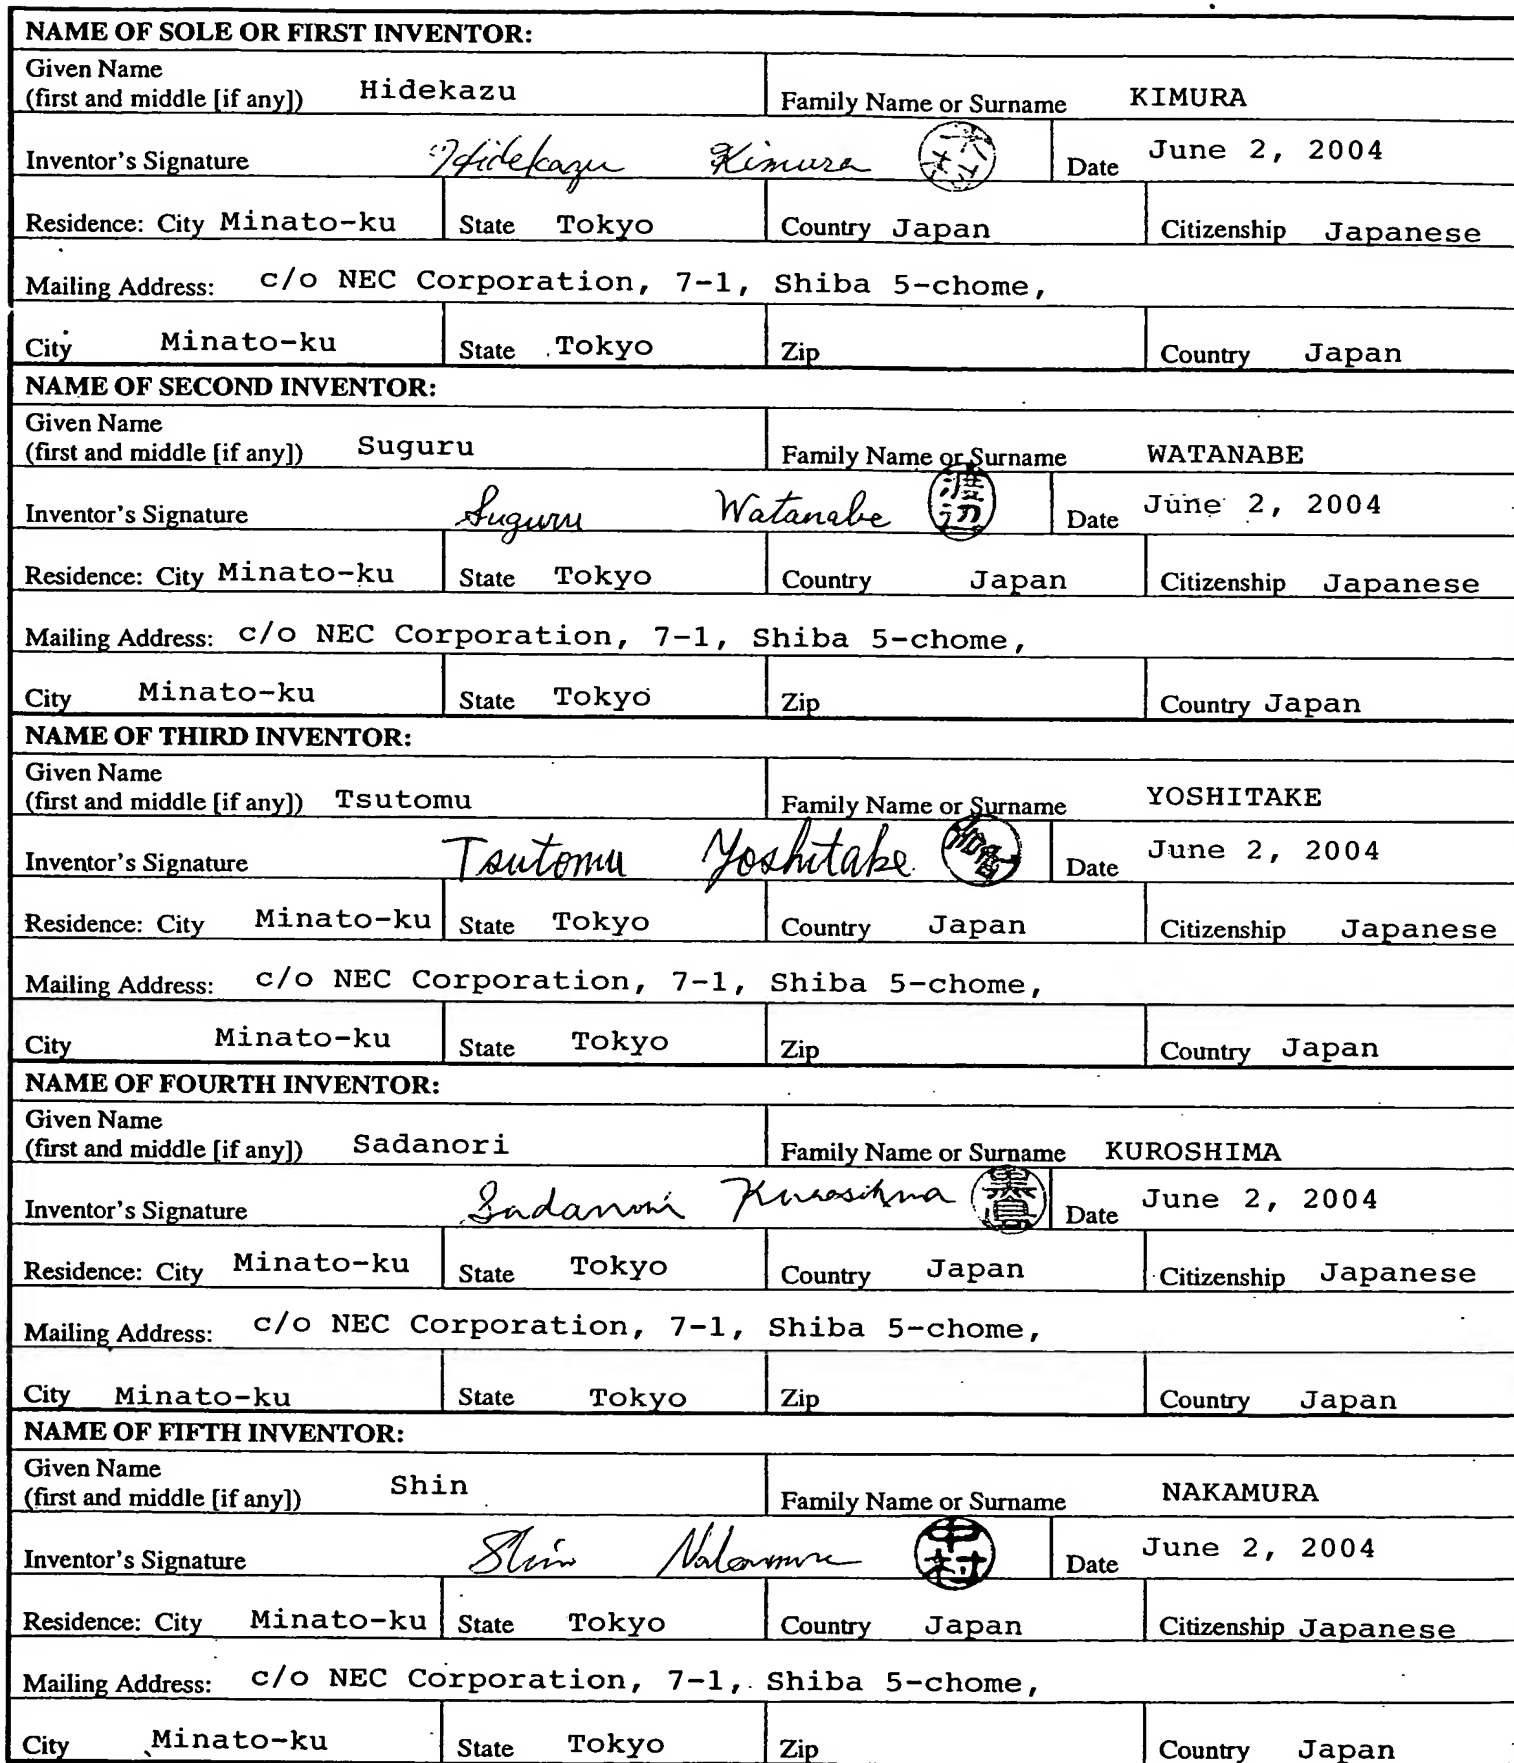 NAME OF SOLE OR FIRST INVENTOR:
Given Name
(first and middle [if any]) Hidekazu Family Name or Surname KIMURA
Inventor's Signature Hidekazu Kimura Date June 2, 2004
Residence: City Minato-ku State Tokyo Country Japan Citizenship Japanese
Mailing Address: c/o NEC Corporation, 7-1, Shiba 5-chome,
City Minato-ku State Tokyo Zip Country Japan
NAME OF SECOND INVENTOR:
Given Name
(first and middle [if any]) Suguru Family Name or Surname WATANABE
Inventor's Signature Suguru Watanabe Date June 2, 2004
Residence: City Minato-ku State Tokyo Country Japan Citizenship Japanese
Mailing Address: c/o NEC Corporation, 7-1, Shiba 5-chome,
City Minato-ku State Tokyo Zip Country Japan
NAME OF THIRD INVENTOR:
Given Name
(first and middle [if any]) Tsutomu Family Name or Surname YOSHITAKE
Inventor's Signature Tsutomu Yoshitake Date June 2, 2004
Residence: City Minato-ku State Tokyo Country Japan Citizenship Japanese
Mailing Address: c/o NEC Corporation, 7-1, Shiba 5-chome,
City Minato-ku State Tokyo Zip Country Japan
NAME OF FOURTH INVENTOR:
Given Name
(first and middle [if any]) Sadanori Family Name or Surname KUROSHIMA
Inventor's Signature Sadanori Kurosihma 黒島 Date June 2, 2004
Residence: City Minato-ku State Tokyo Country Japan Citizenship Japanese
Mailing Address: c/o NEC Corporation, 7-1, Shiba 5-chome,
City Minato-ku State Tokyo Zip Country Japan
NAME OF FIFTH INVENTOR:
Given Name
(first and middle [if any]) Shin Family Name or Surname NAKAMURA
Inventor's Signature Shin Nakamura 中村 Date June 2, 2004
Residence: City Minato-ku State Tokyo Country Japan Citizenship Japanese
Mailing Address: c/o NEC Corporation, 7-1, Shiba 5-chome,
City Minato-ku State Tokyo Zip Country Japan